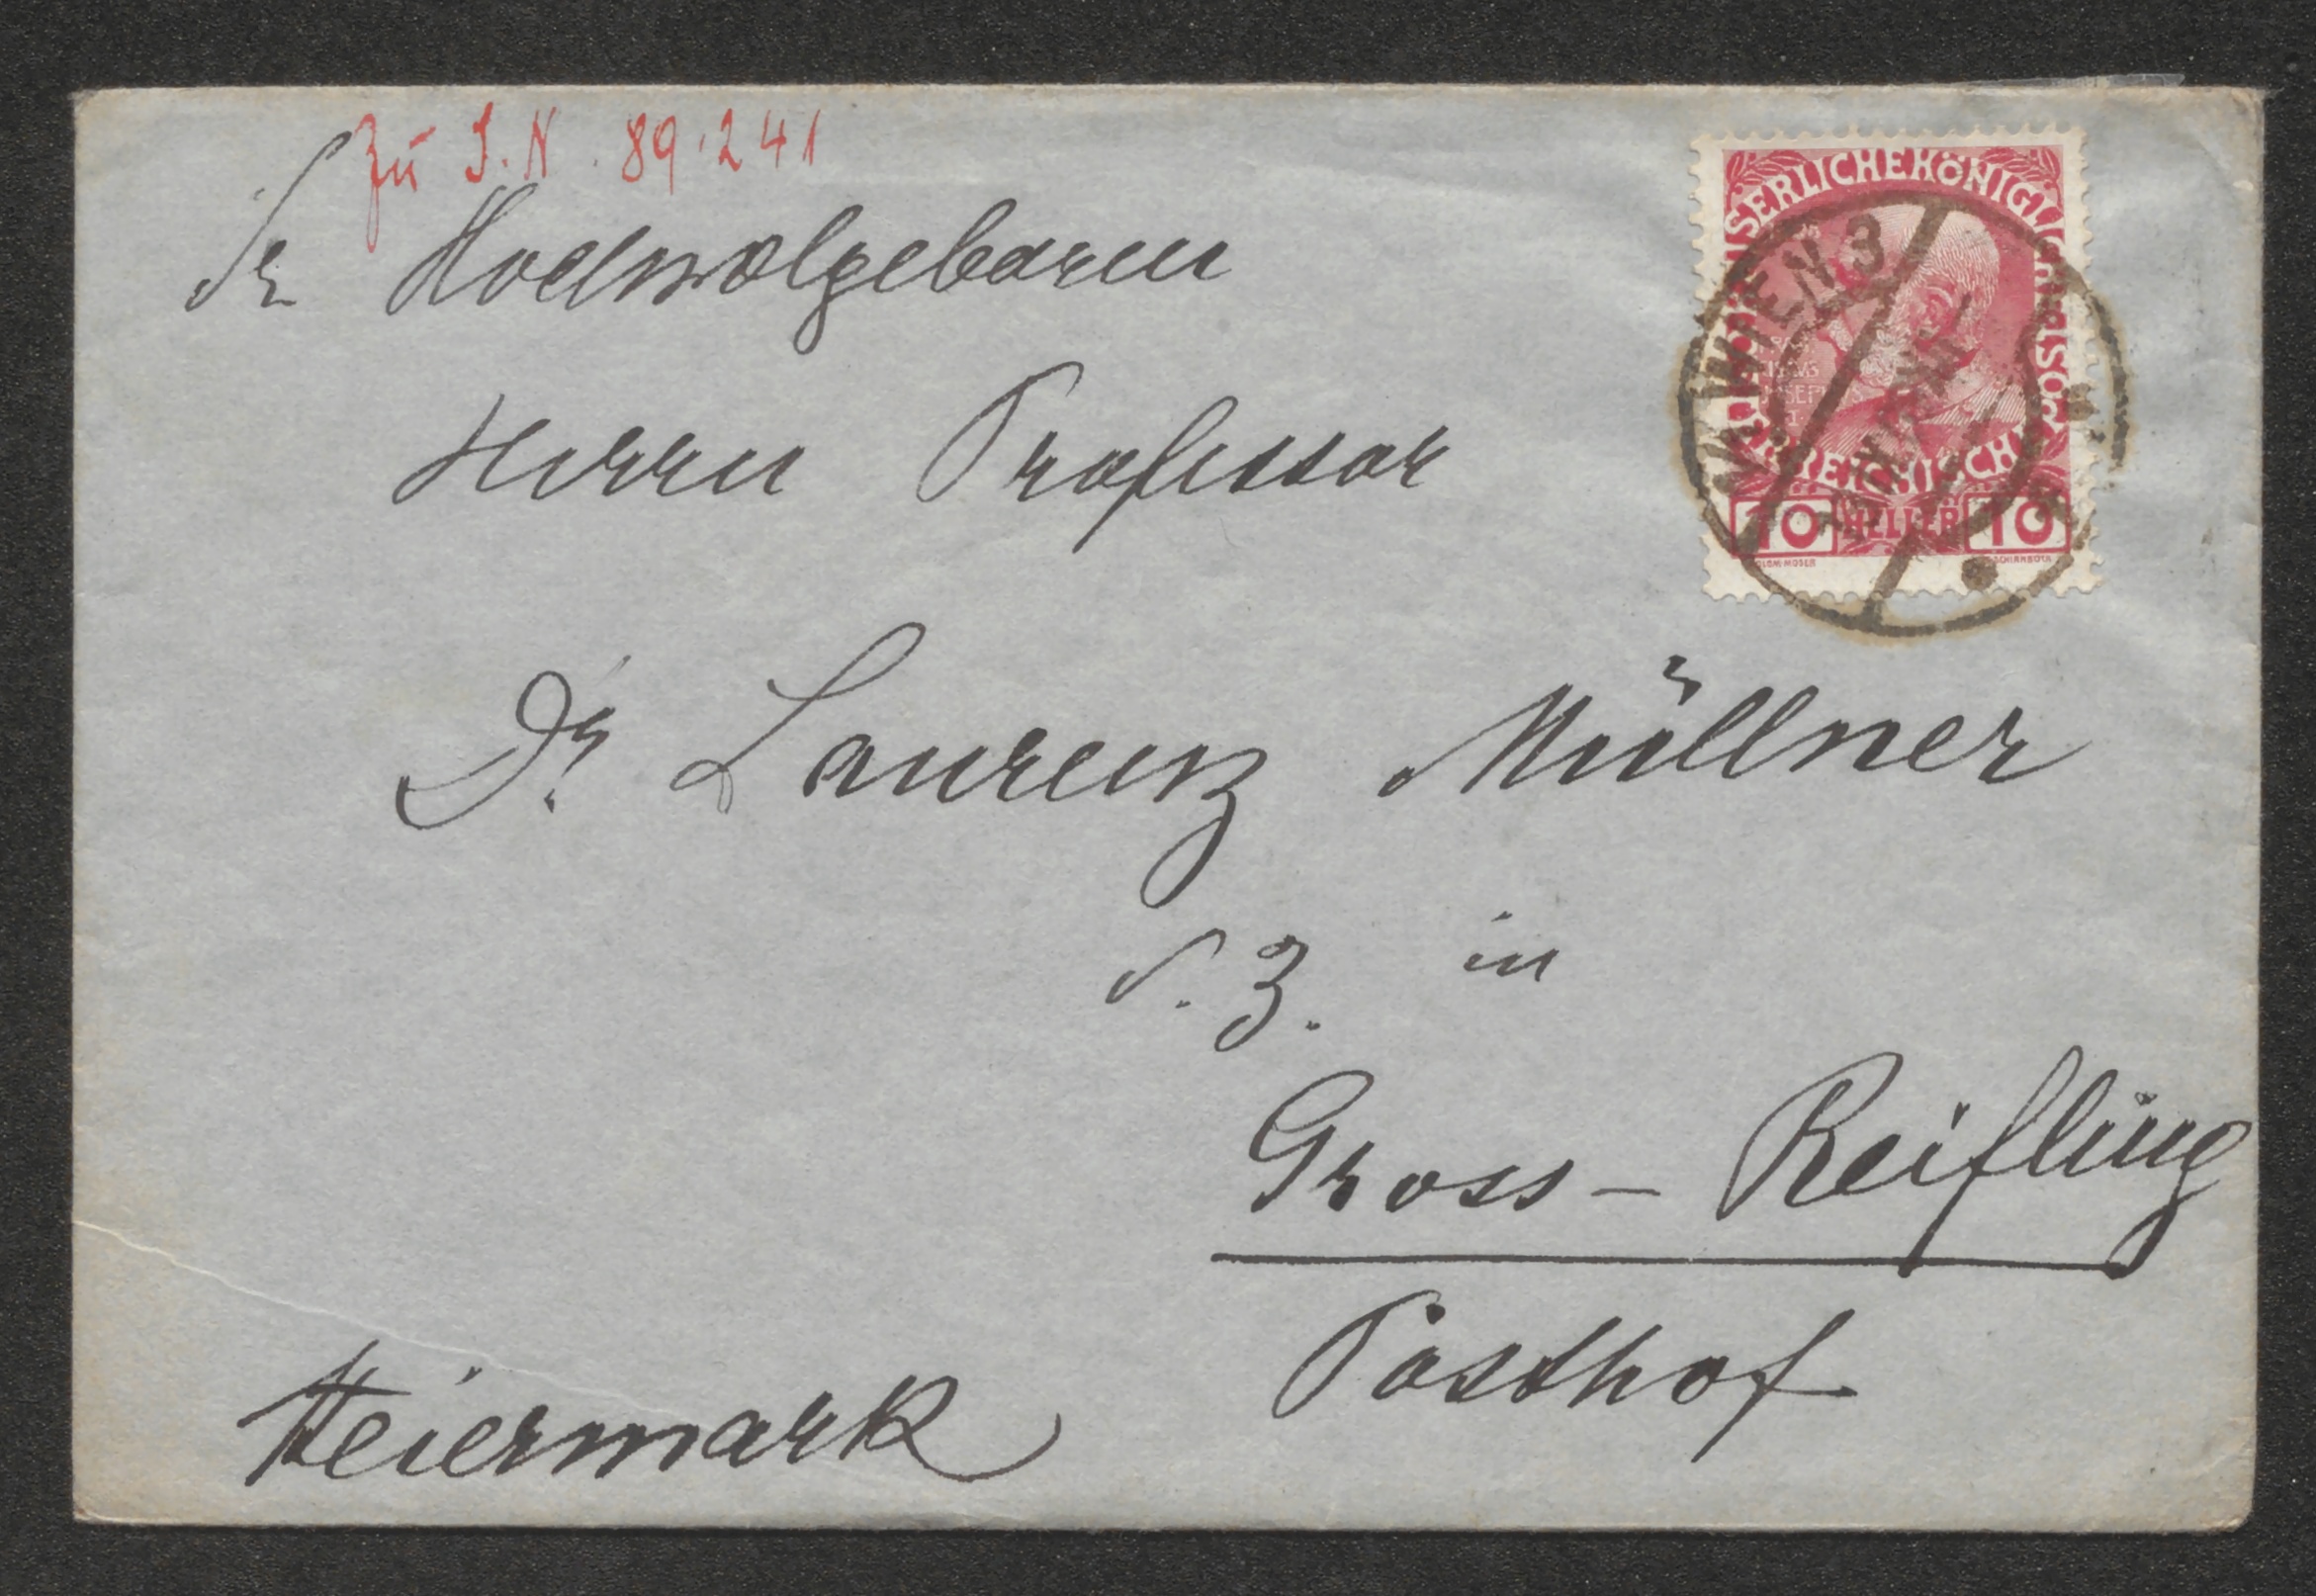 Zu I.N. 89.241
Sr Hochwolgeboren
Herrn Professor
Dr. Laurenz Müllner
d. Z. in
Gross-Reifling
Posthof
Steiermark
KAISERLICHE KÖNIGLICHE ÖSTERREICHISCHE
WIEN 3
10 HELLER 10